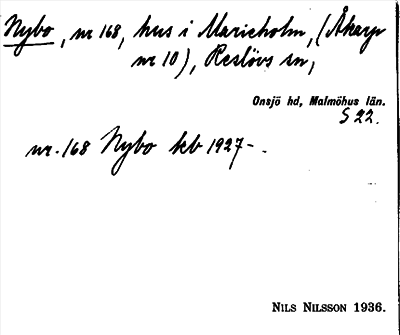 Nybo, nr 168, hus i Marieholm, (Åkarp
nr 10), Reslövs sn,
Onsjö hd, Malmöhus län.
S 22.
nr. 168 Nybo kb 1927-.
NILS NILSSON 1936.